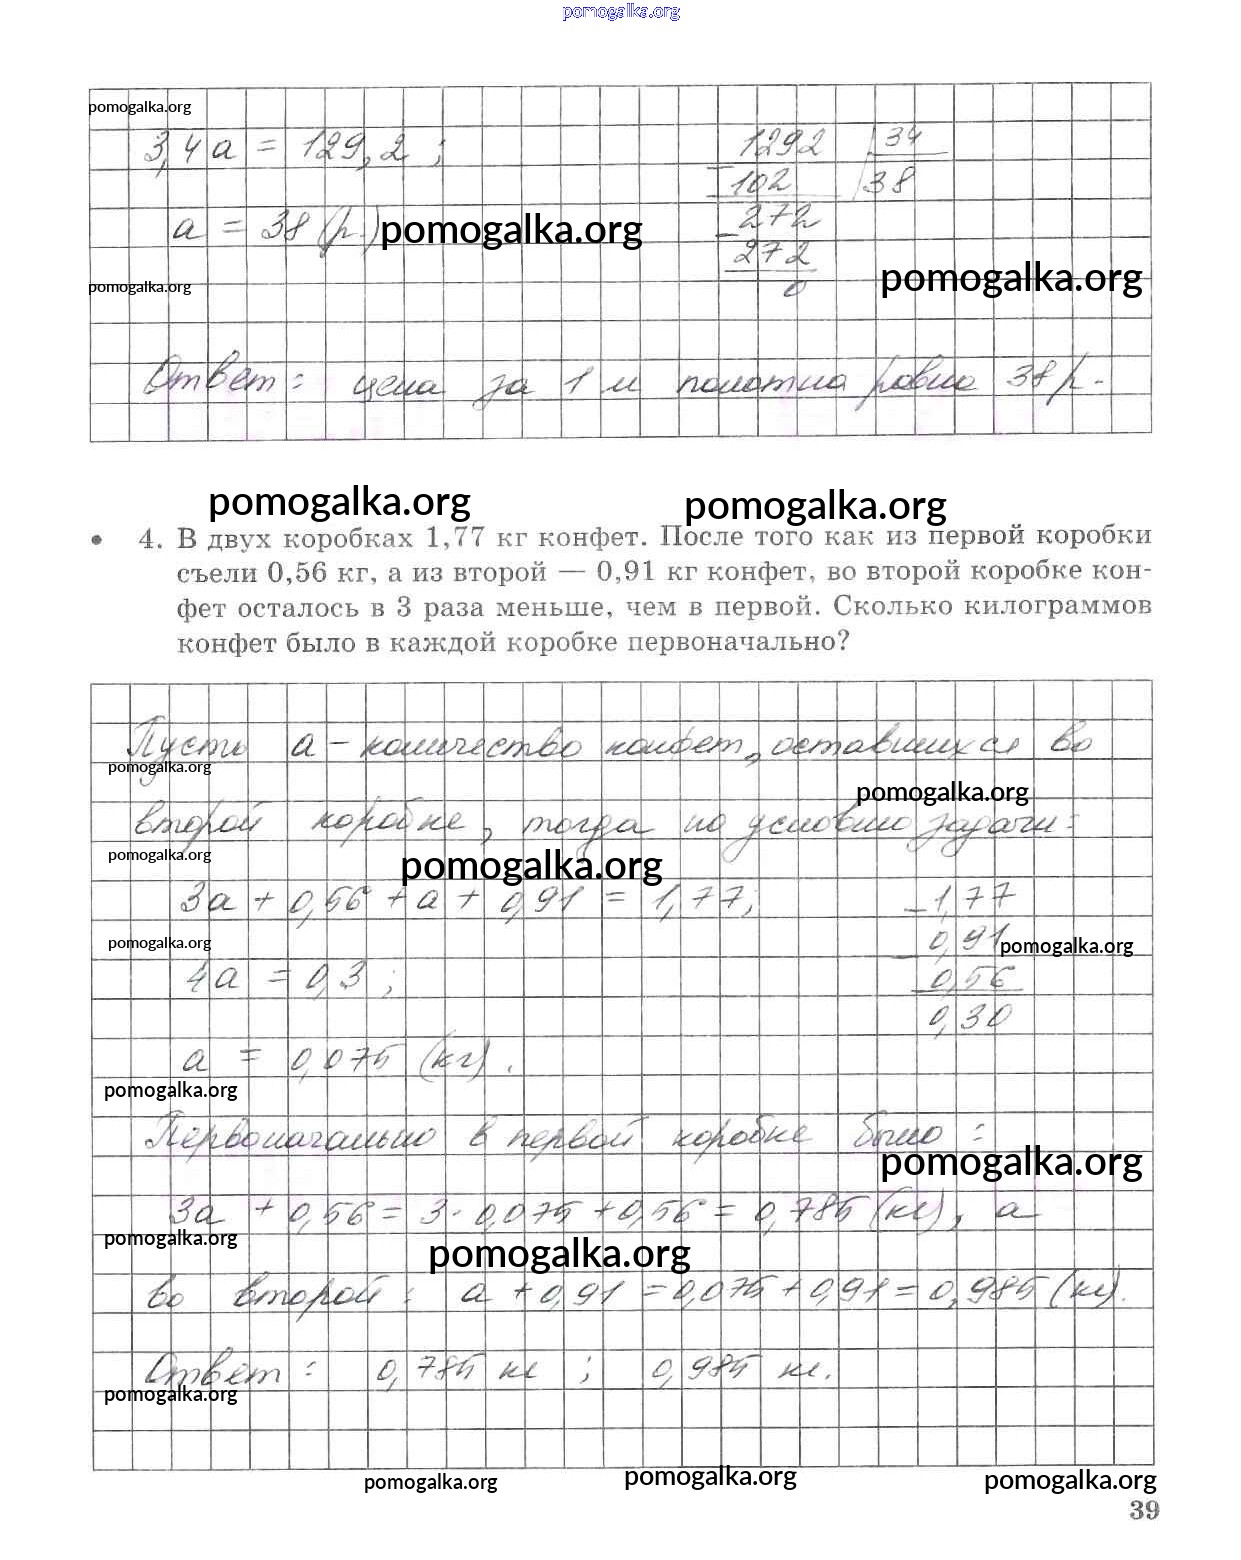 pomogalka.org
pomogalka.org
3,4a = 129,2 ;
1292 34
- 102 38
a = 38 (р.) pomogalka.org
- 272
272
0
pomogalka.org
pomogalka.org
Ответ: цена за 1 м полотна равна 38 р.
pomogalka.org pomogalka.org
• 4. В двух коробках 1,77 кг конфет. После того как из первой коробки
съели 0,56 кг, а из второй — 0,91 кг конфет, во второй коробке кон-
фет осталось в 3 раза меньше, чем в первой. Сколько килограммов
конфет было в каждой коробке первоначально?
Пусть a - количество конфет, оставшихся во
pomogalka.org
pomogalka.org
второй коробке, тогда по условию задачи:
pomogalka.org
pomogalka.org
3a + 0,56 + a + 0,91 = 1,77;
- 1,77
pomogalka.org
- 0,91
pomogalka.org
4a = 0,3 ;
0,56
0,30
a = 0,075 (кг).
pomogalka.org
Первоначально в первой коробке было :
pomogalka.org
3a + 0,56 = 3 · 0,075 + 0,56 = 0,785 (кг), а
pomogalka.org
pomogalka.org
во второй : a + 0,91 = 0,075 + 0,91 = 0,985 (кг).
Ответ : 0,785 кг ; 0,985 кг.
pomogalka.org
pomogalka.org pomogalka.org pomogalka.org
39